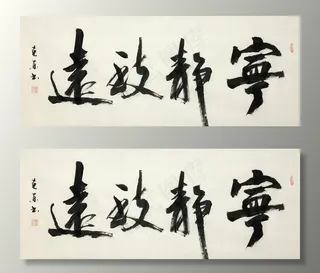 寧靜致遠
寧靜致遠